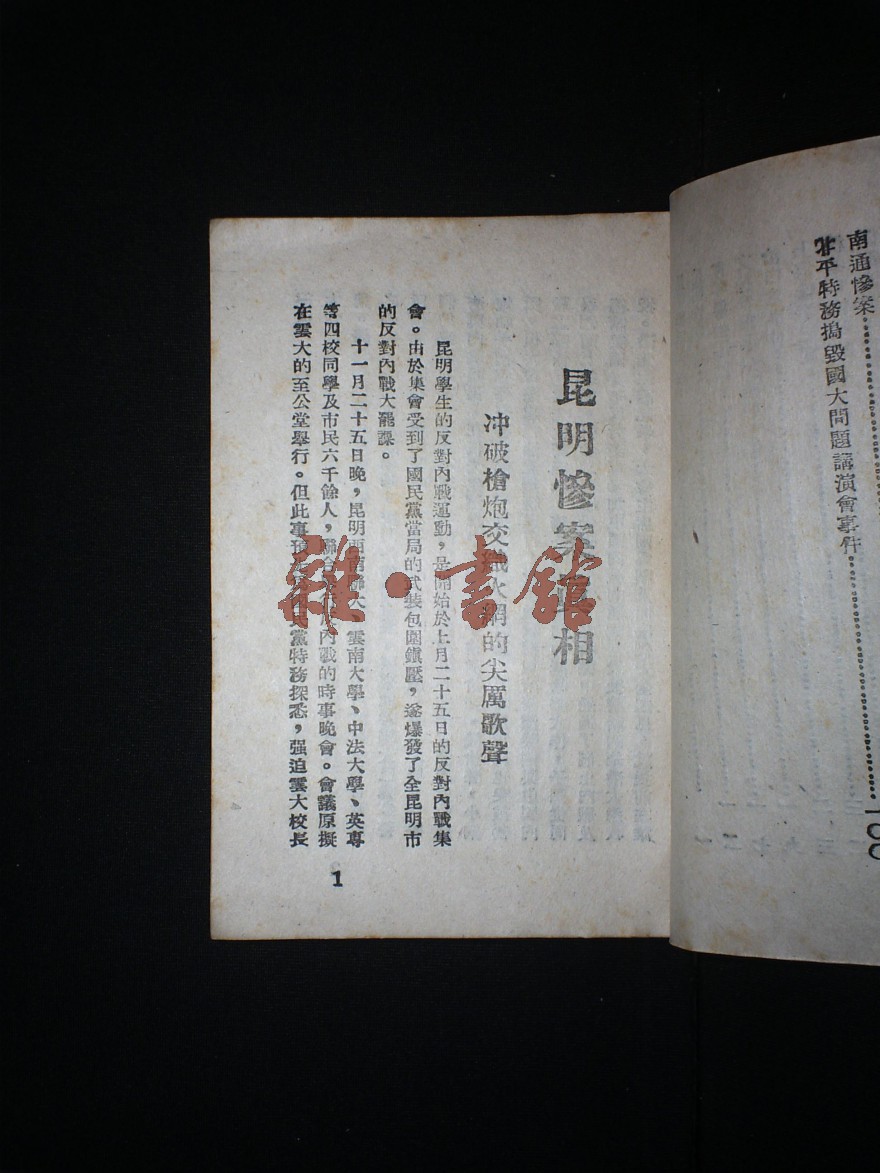 南通慘案
北平特務搗毀國大問題講演會事件 100
昆明慘案 相
冲破槍炮交織火網的尖厲歌聲
昆明學生的反對內戰運動，是開始於上月二十五日的反對內戰集
會。由於集會受到了國民黨當局的武裝包圍鎮壓，遂爆發了全昆明市
的反對內戰大罷課。
十一月二十五日晚，昆明西南聯大、雲南大學、中法大學、英專
等四校同學及市民六千餘人，聯合 內戰的時事晚會。會議原擬
在雲大的至公堂舉行。但此事預 民黨特務探悉，强迫雲大校長
1
雜·書館